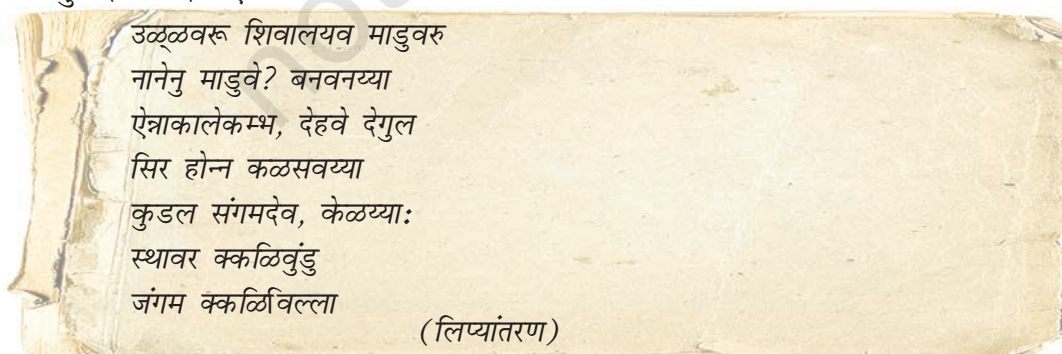 उळ्ळवरू शिवालयव माडुवरु
नानेनु माडुवे? बनवनय्या
ऐन्नाकालेकम्भ, देहवे देगुल
सिर होन्न कळसवय्या
कुडल संगमदेव, केळय्याः
स्थावर क्कळिवुंडु
जंगम क्कळिविल्ला
(लिप्यांतरण)